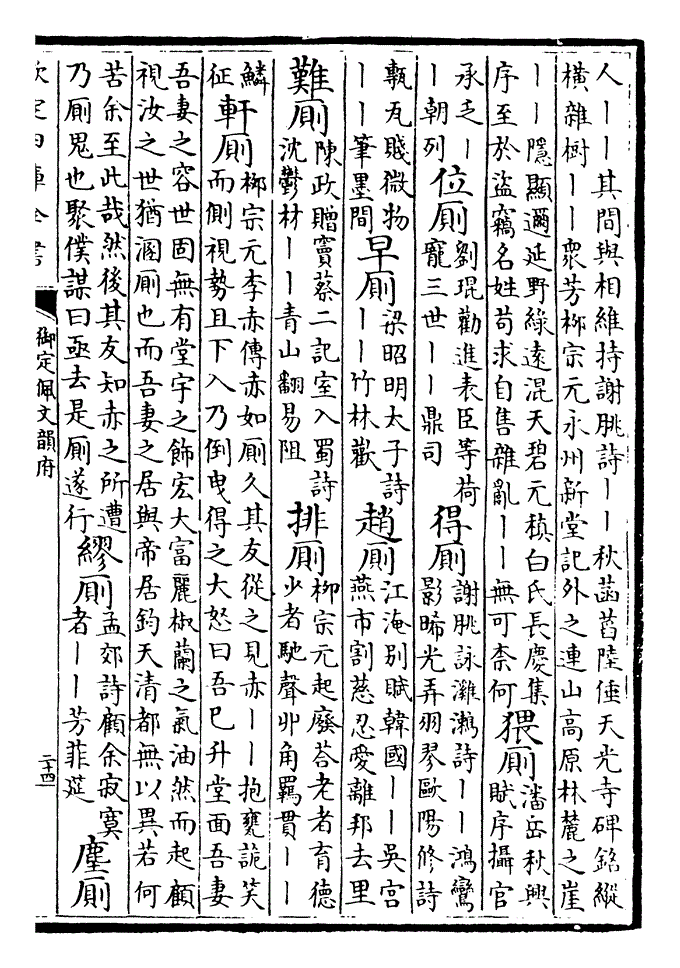 人丨丨其間與相維持謝朓詩丨丨秋菡萏陸倕天光寺碑銘縱
橫雜樹丨丨衆芳柳宗元永州新堂記外之連山高原林麓之崖
丨丨隱顯邇延野綠遠混天碧元稹白氏長慶集
序至於盜竊名姓苟求自售雜亂丨丨無可柰何
猥廁
潘岳秋興
賦序攝官
承乏丨
丨朝列
位廁
劉琨勸進表臣等荷
寵三世丨丨鼎司
得廁
謝朓詠鸂鶒詩丨丨鴻鸞
影晞光弄羽翏歐陽修詩
瓠瓦賤微物
丨丨筆墨間
早廁
梁昭明太子詩
丨丨竹林歡
趙廁
江淹别賦韓國丨丨吳宫
燕市割慈忍愛離邦去里
難廁
陳政贈竇蔡二記室入蜀詩
沈鬱材丨丨青山翻易阻
排廁
柳宗元起廢荅老者育德
少者馳聲丱角羈貫丨丨
鱗
征
軒廁
柳宗元李赤傳赤如廁久其友從之見赤丨丨抱甕詭笑
而側視勢且下入乃倒曳得之大怒曰吾已升堂面吾妻
吾妻之容世固無有堂宇之飾宏大富麗椒蘭之氣油然而起顧
視汝之世猶溷廁也而吾妻之居與帝居鈞天清都無以異若何
苦余至此哉然後其友知赤之所遭
乃廁鬼也聚僕謀曰亟去是廁遂行
繆廁
孟郊詩顧余寂寞
者丨丨芳菲莚
塵廁
欽定四庫全書
御定佩文韻府
二十四